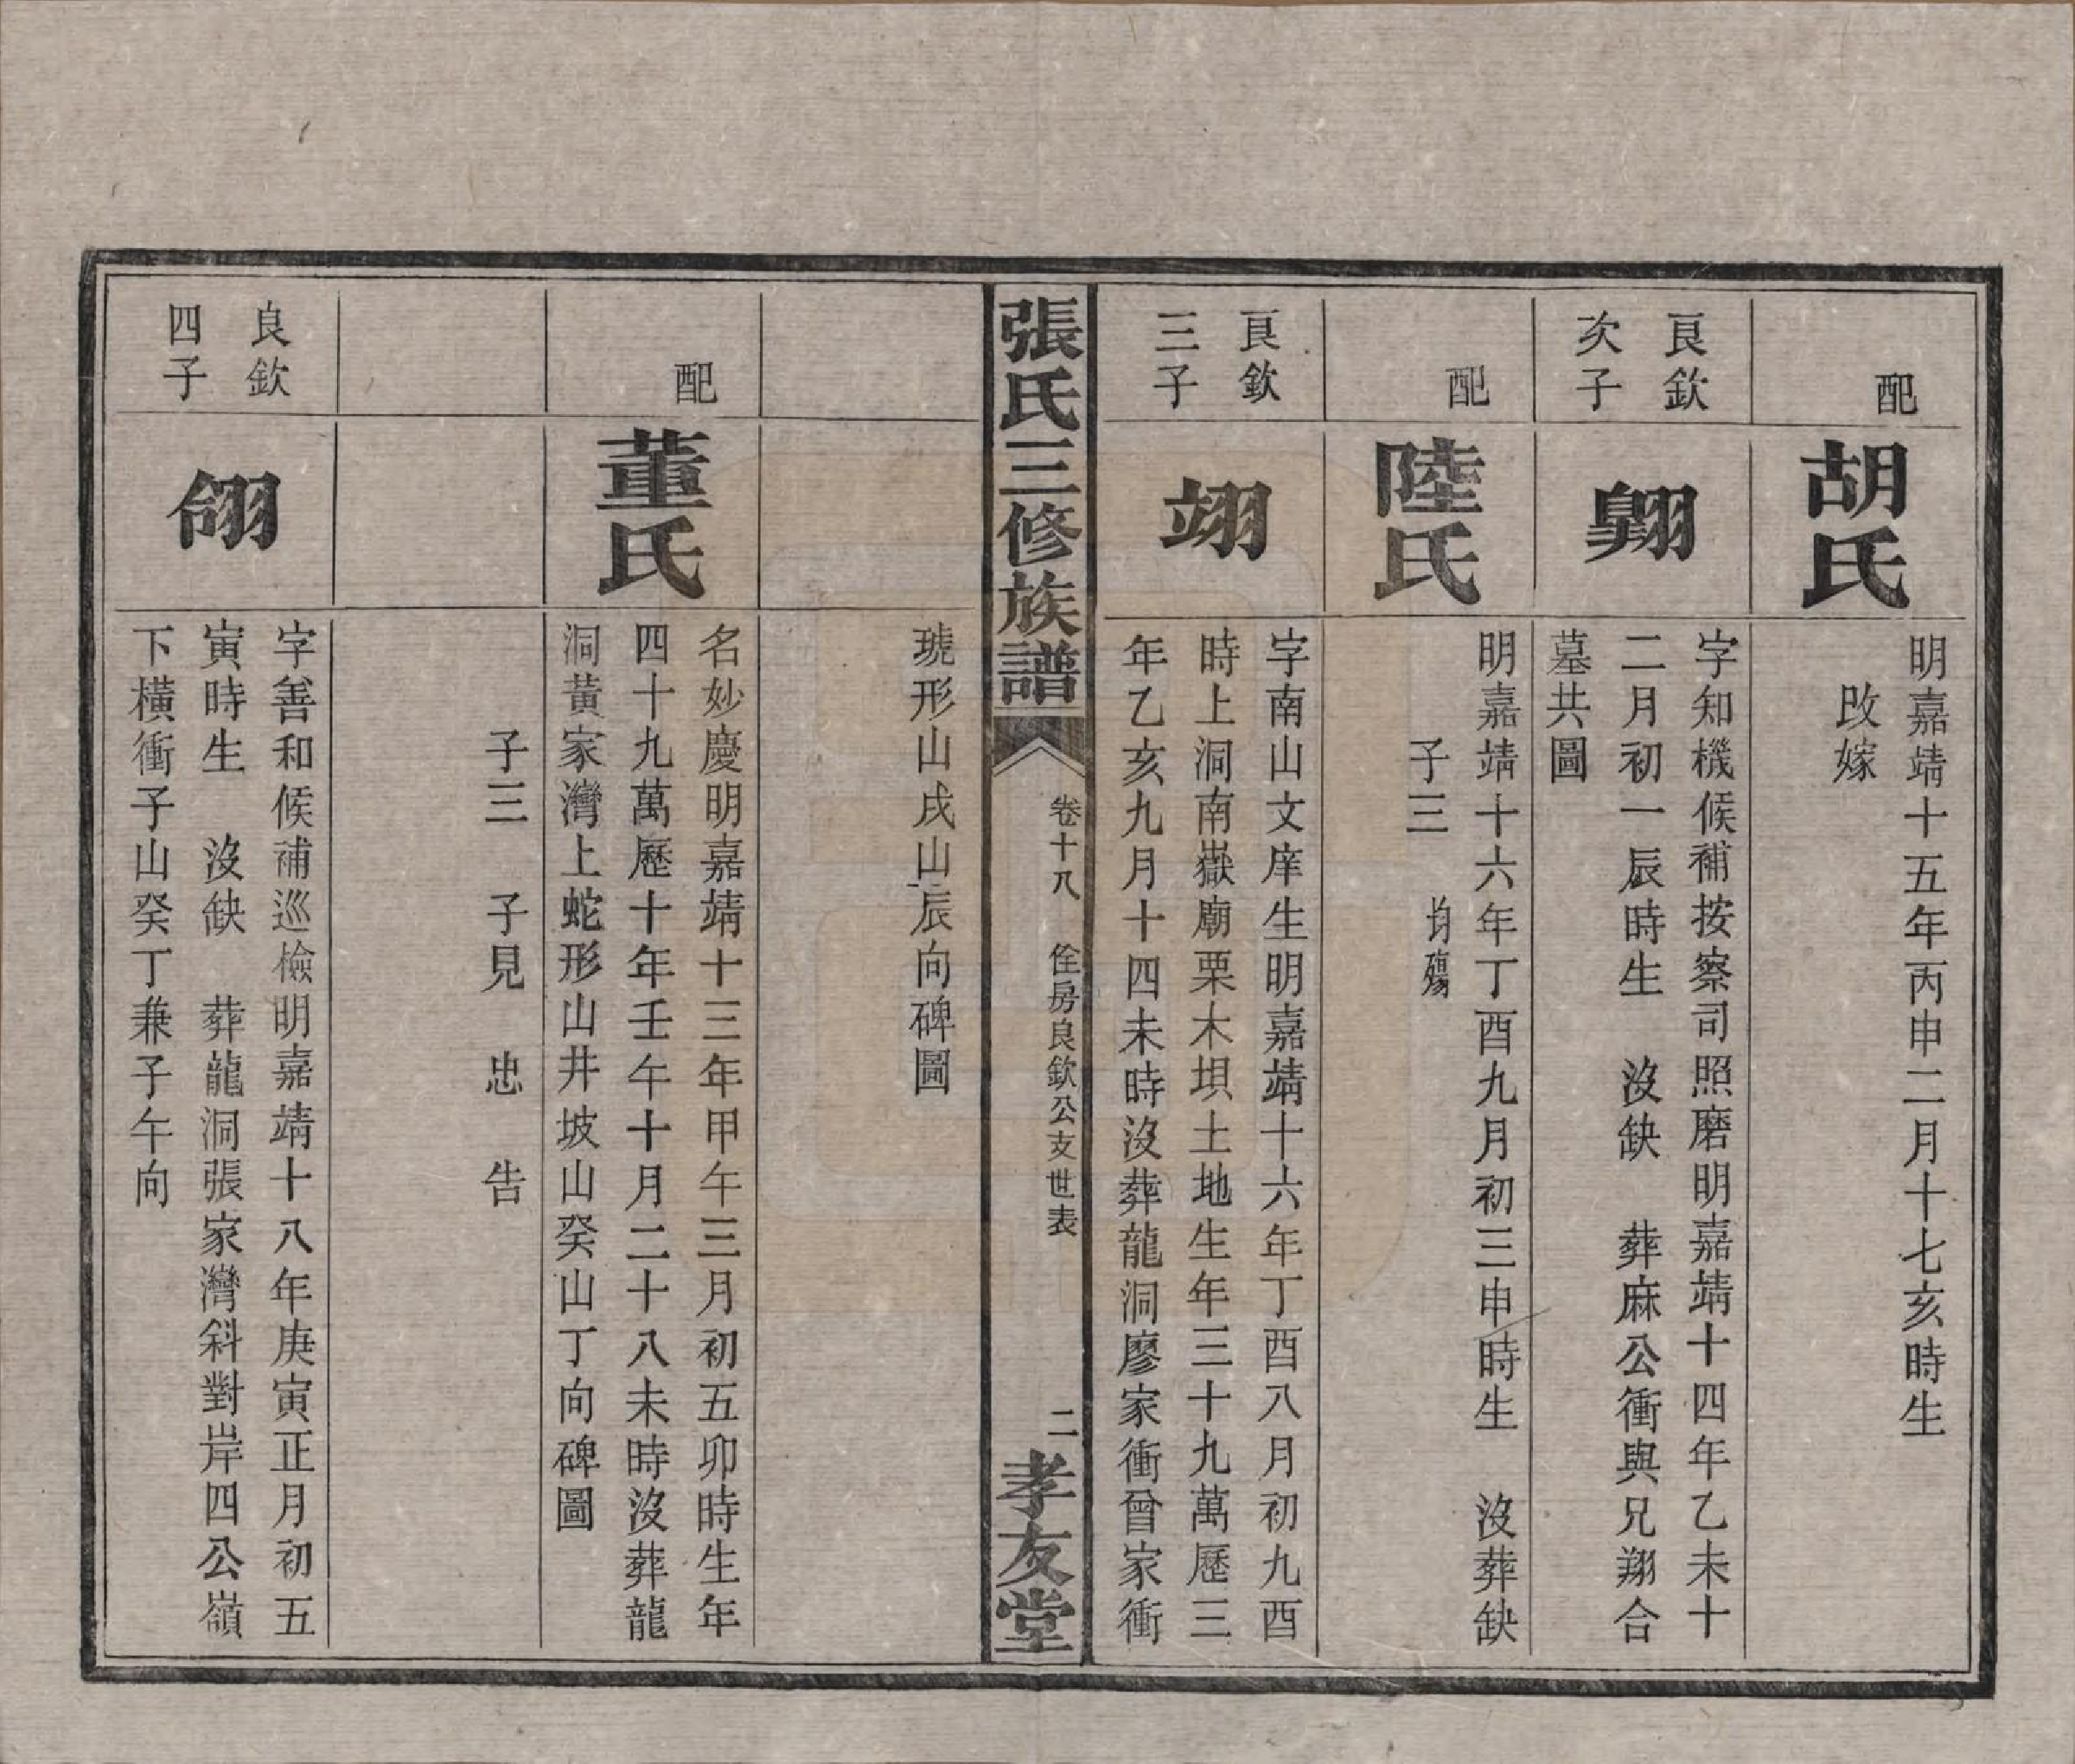 配
胡氏
明嘉靖十五年丙申二月十七亥時生
改嫁
良欽
次子
翺
字知機候補按察司照磨明嘉靖十四年乙未十
二月初一辰時生 沒缺 葬麻公衝與兄翔合
墓共圖
配
陸氏
明嘉靖十六年丁酉九月初三申時生 沒葬缺
子三 均殤
良欽
三子
翊
字南山文庠生明嘉靖十六年丁酉八月初九酉
時上洞南嶽廟栗木垻土地生年三十九萬歷三
年乙亥九月十四未時沒葬龍洞廖家衝曾家衝
張氏三修族譜
卷十八 佺房良欽公支世表
二
孝友堂
琥形山戌山辰向碑圖
配
董氏
名妙慶明嘉靖十三年甲午三月初五卯時生年
四十九萬歷十年壬午十月二十八未時沒葬龍
洞黃家灣上蛇形山井坡山癸山丁向碑圖
子三 子見 忠 告
良欽
四子
翖
字善和候補巡檢明嘉靖十八年庚寅正月初五
寅時生 沒缺 葬龍洞張家灣斜對岸四公嶺
下橫衝子山癸丁兼子午向